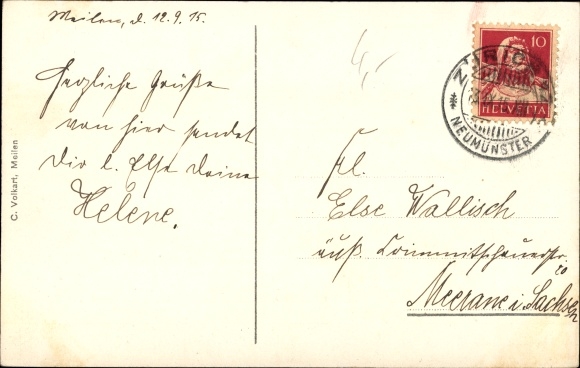 Meilen, d. 12.9.15.
Herzliche Grüße
von hier sendet
Dir l. Else Deine
Helene.
C. Volkart, Meilen
4,-
10
HELVETIA
ZÜRICH
NEUMÜNSTER
Frl.
Else Wallisch
äuß. Crimmitschauerstr.
20
Meerane i. Sachsen